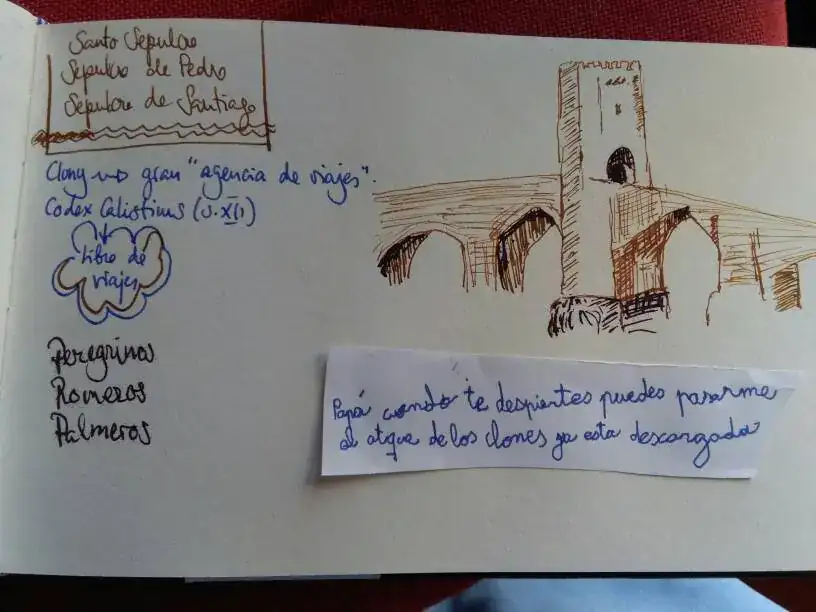 Santo Sepulcro
Sepulcro de Pedro
Sepulcro de Santiago
Cluny → gran "agencia de viajes".
Codex Calistinus (s. XII)
Libro de
viajes
Peregrinos
Romeros
Palmeros
Papá cuando te despiertes puedes pasarme
el atque de los clones ya esta descargada